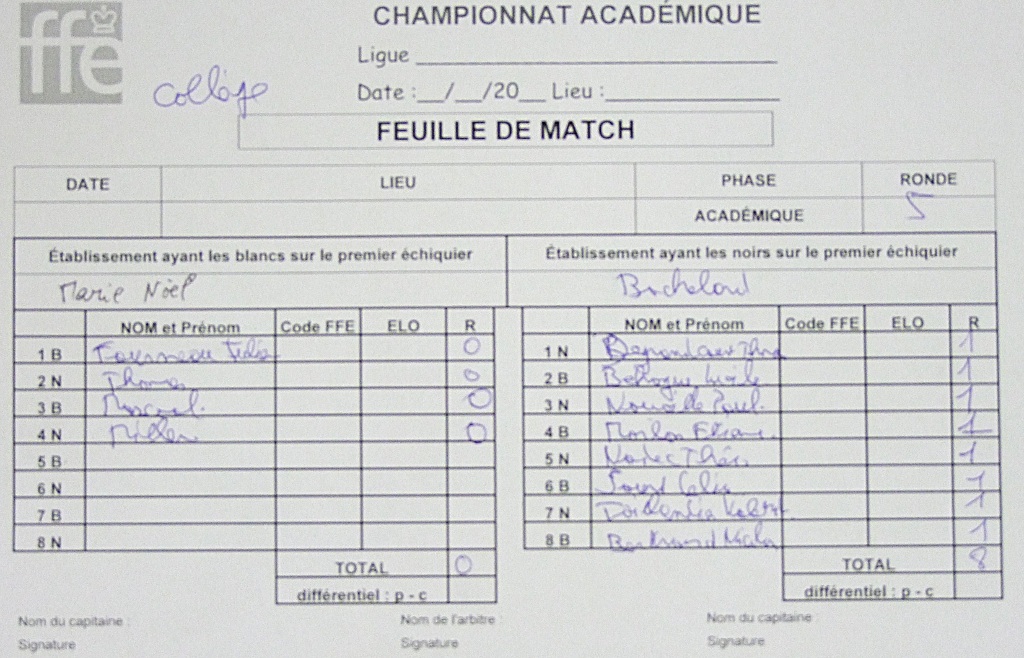 ffe
CHAMPIONNAT ACADÉMIQUE
Ligue
Collège
Date :__/__/20__ Lieu :
FEUILLE DE MATCH
DATE LIEU PHASE RONDE
ACADÉMIQUE 5
Établissement ayant les blancs sur le premier échiquier Établissement ayant les noirs sur le premier échiquier
Marie Noël
NOM et Prénom Code FFE ELO R NOM et Prénom Code FFE ELO R
1 B 0 1 N 1
2 N Thomas 0 2 B 1
3 B 0 3 N Paul 1
4 N 0 4 B 1
5 B 5 N 1
6 N 6 B 1
7 B 7 N 1
8 N 8 B Bertrand 1
TOTAL 0 TOTAL 8
différentiel : p - c différentiel : p - c
Nom du capitaine : Nom de l'arbitre : Nom du capitaine :
Signature Signature Signature